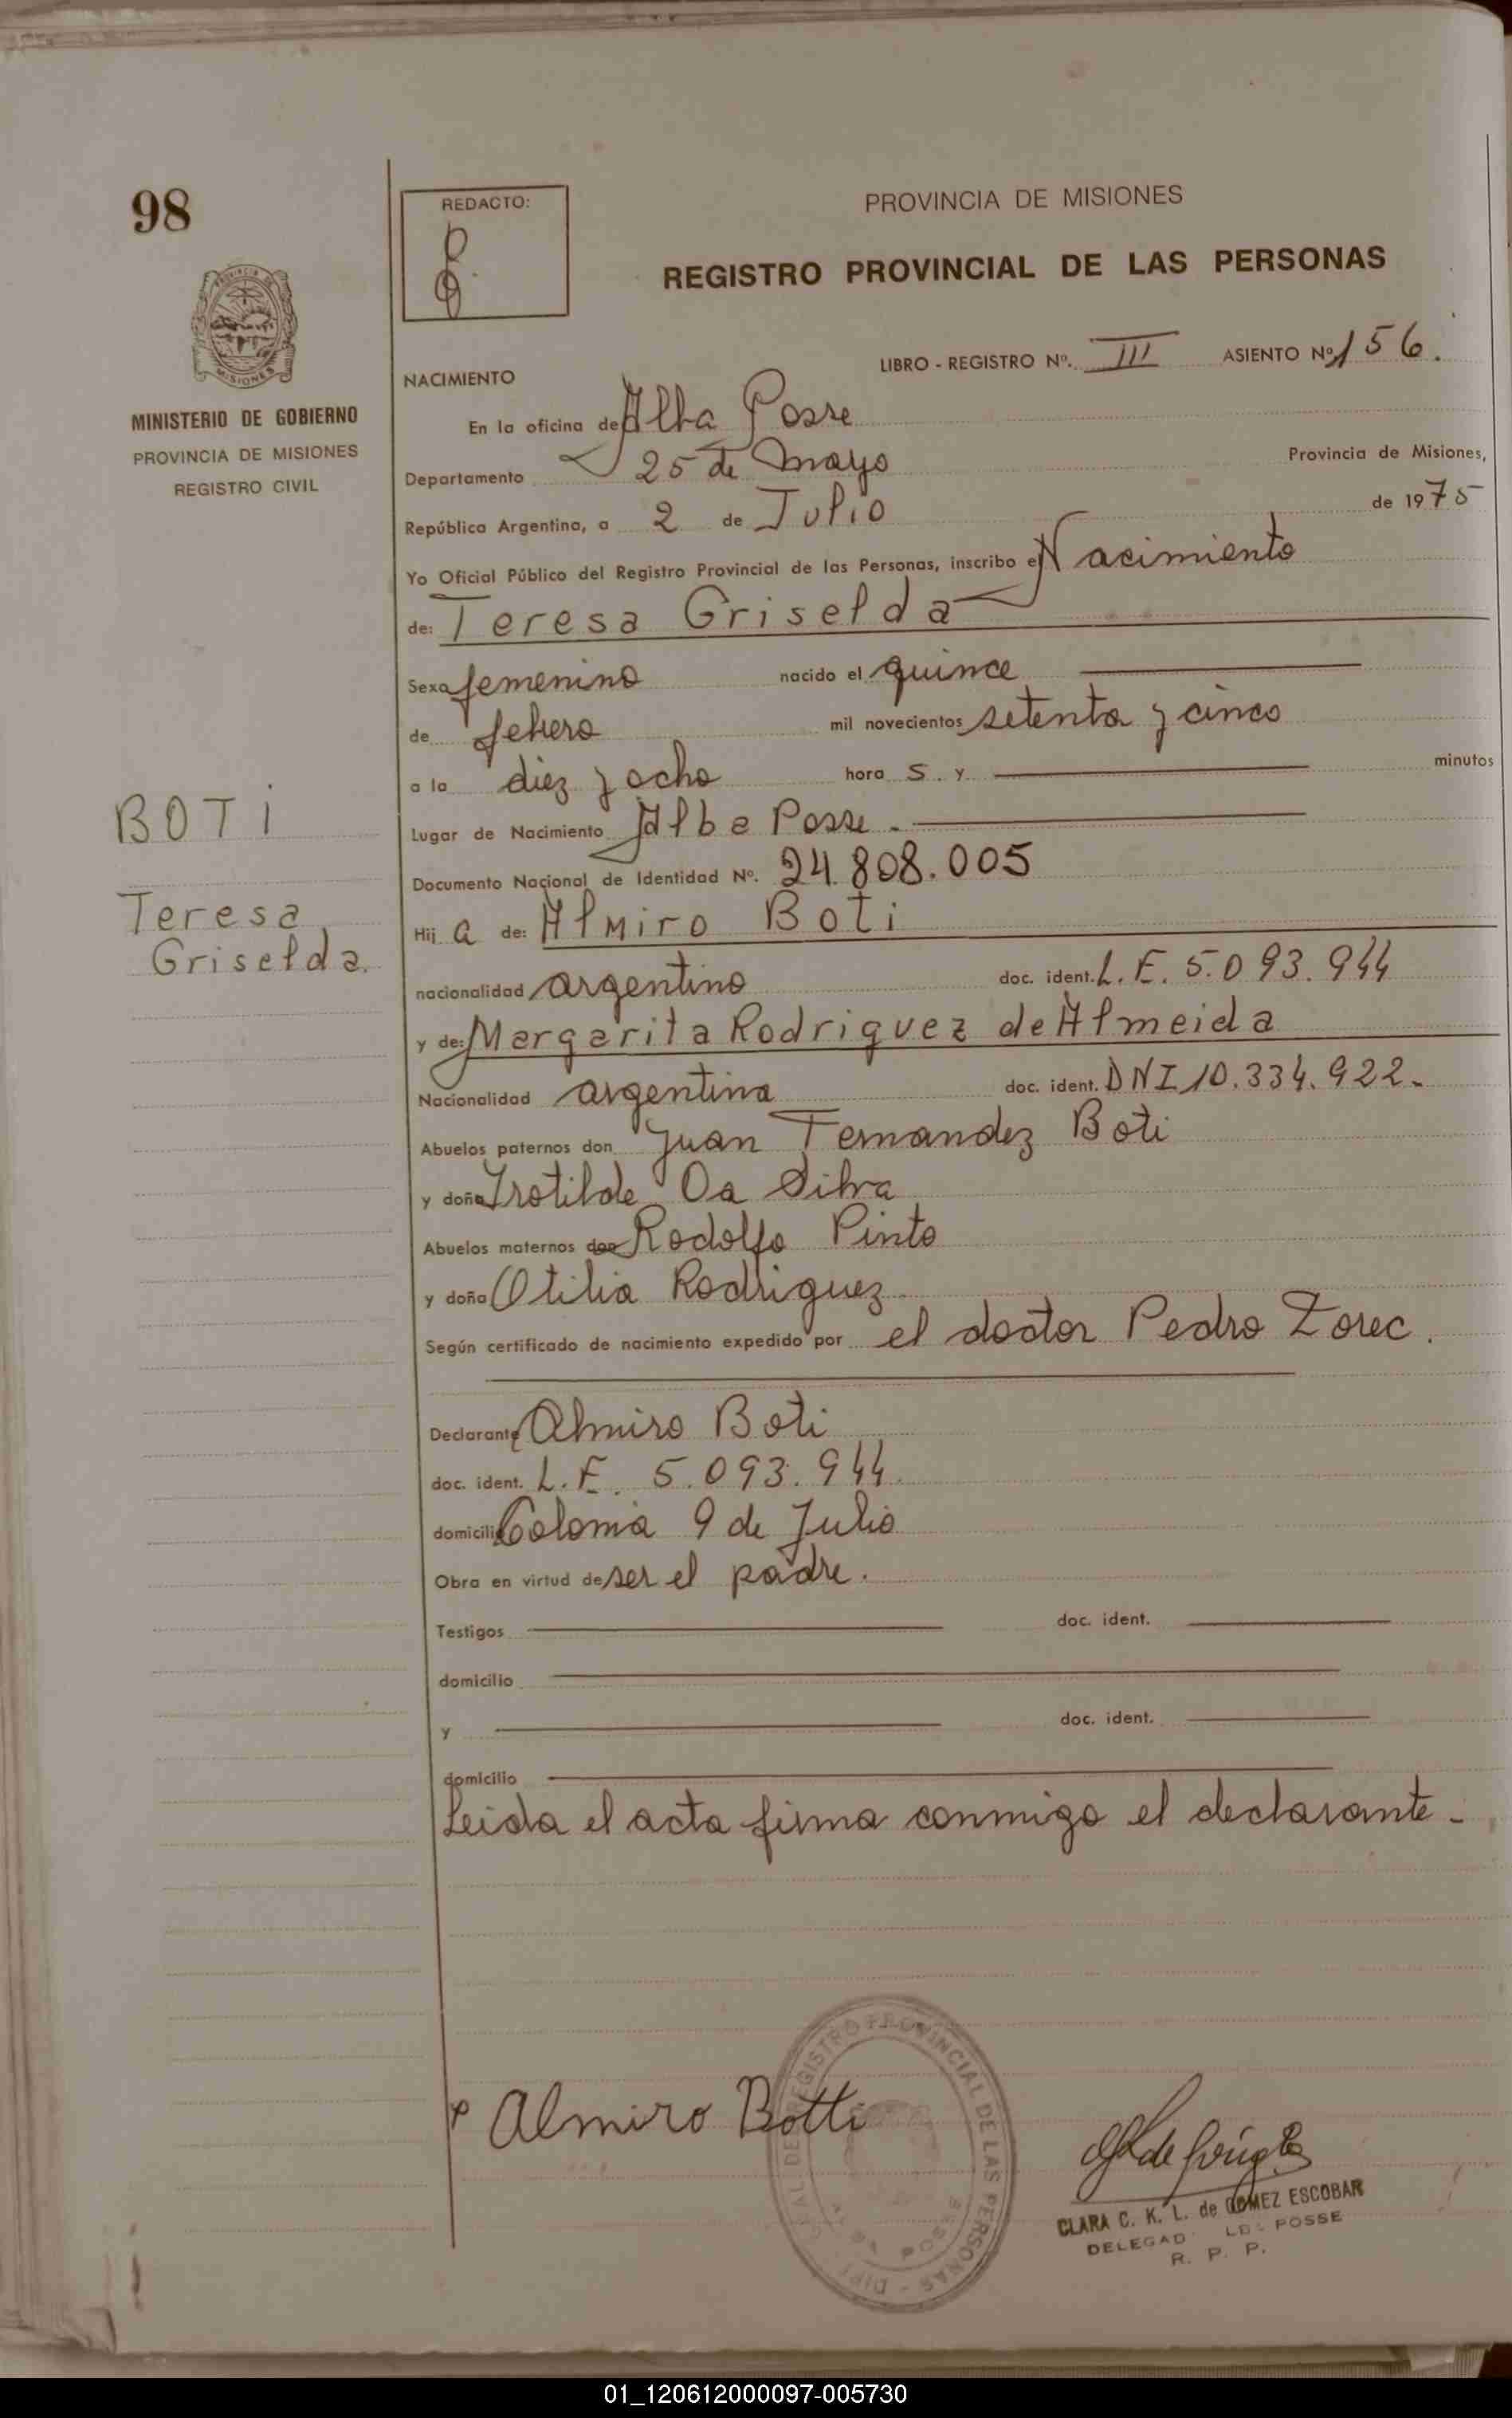 98
REDACTO:
PROVINCIA DE MISIONES
REGISTRO PROVINCIAL DE LAS PERSONAS
MINISTERIO DE GOBIERNO
PROVINCIA DE MISIONES
REGISTRO CIVIL
LIBRO - REGISTRO Nº. III ASIENTO Nº 156.
NACIMIENTO
En la oficina de Alba Posse
Departamento 25 de Mayo Provincia de Misiones,
República Argentina, a 2 de Julio de 1975
Yo Oficial Público del Registro Provincial de las Personas, inscribo el Nacimiento
de: Teresa Griselda
Sexo femenino nacido el quince
de febero mil novecientos setenta y cinco
a la diez y ocho hora s. y minutos
BOTI
Lugar de Nacimiento Alba Posse.
Documento Nacional de Identidad Nº. 24.808.005
Teresa
Griselda.
Hij a de: Almiro Boti
nacionalidad argentino doc. ident. L.E. 5.093.944
y de: Margarita Rodriguez de Almeida
Nacionalidad argentina doc. ident. DNI 10.334.922.
Abuelos paternos don Juan Fernandez Boti
y doña Da Silva
Abuelos maternos don Rodolfo Pinto
y doña Otilia Rodriguez
Según certificado de nacimiento expedido por el doctor Pedro Zorec.
Declarante Almiro Boti
doc. ident. L.E. 5.093.944
domicilio Colonia 9 de Julio
Obra en virtud de ser el padre.
Testigos doc. ident.
domicilio
y doc. ident.
domicilio
Leida el acta firma conmigo el declarante -
Almiro Botti
REGISTRO PROVINCIAL DE LAS PERSONAS
CLARA C. K. L. de GOMEZ ESCOBAR
DELEGAD POSSE
R. P. P.
01_120612000097-005730